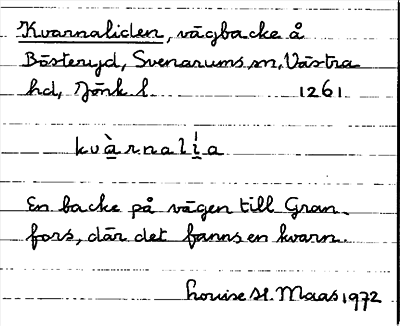 Kvarnaliden, vägbacke å
Bästeryd, Svenarums sn, Västra
hd, Jönk l 1261
kvàrnalị̀a
En backe på vägen till Gran-
fors, där det fanns en kvarn.
Louise H. Maas 1972